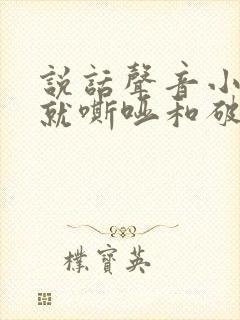 説話聲音小
就嘶啞和破
樸寶英